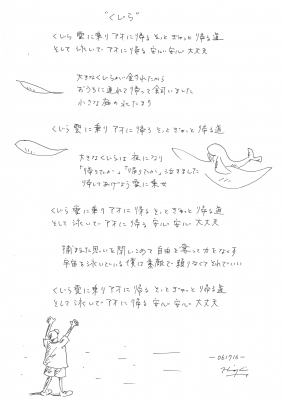 "くじら"
くじら 雲に乗り アオに帰る そっと ぎゅっと 帰る道
そして 泳いで アオに帰る 安心 安心 大丈夫
大きなくじらが 食られたから
おうちに連れて帰って 飼いました
小さな 海の 水たまり
くじら 雲に乗り アオに帰る そっと ぎゅっと 帰る道
大きなくじらは 夜になり
「帰りたいか」「帰りたいか」泣きました
帰してあげよう 雲に乗せ
くじら 雲に乗り アオに帰る そっと ぎゅっと 帰る道
そして 泳いで アオに帰る 安心 安心 大丈夫
思いを閉じこめて 自由を奪って力となす
宇宙を泳いでいる 僕は 素敵で 頼りなくて それでいい
くじら 雲に乗り アオに帰る そっと ぎゅっと 帰る道
そして 泳いで アオに帰る 安心 安心 大丈夫
-061716-